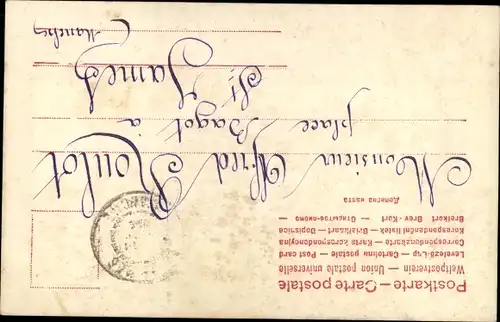 Postkarte — Carte postale
Weltpostverein — Union postale universelle
Levelező-Lap — Cartolina postale — Post card
Correspondenzkarte — Karta korespondencyjna
Korespondenční lístek — Briefkaart — Dopisnica
Brefkort — Brev-Kort — Открытое письмо —
Дописна карта
Monsieur Alfred Roulot
place Bagot à
St James
(Manche)